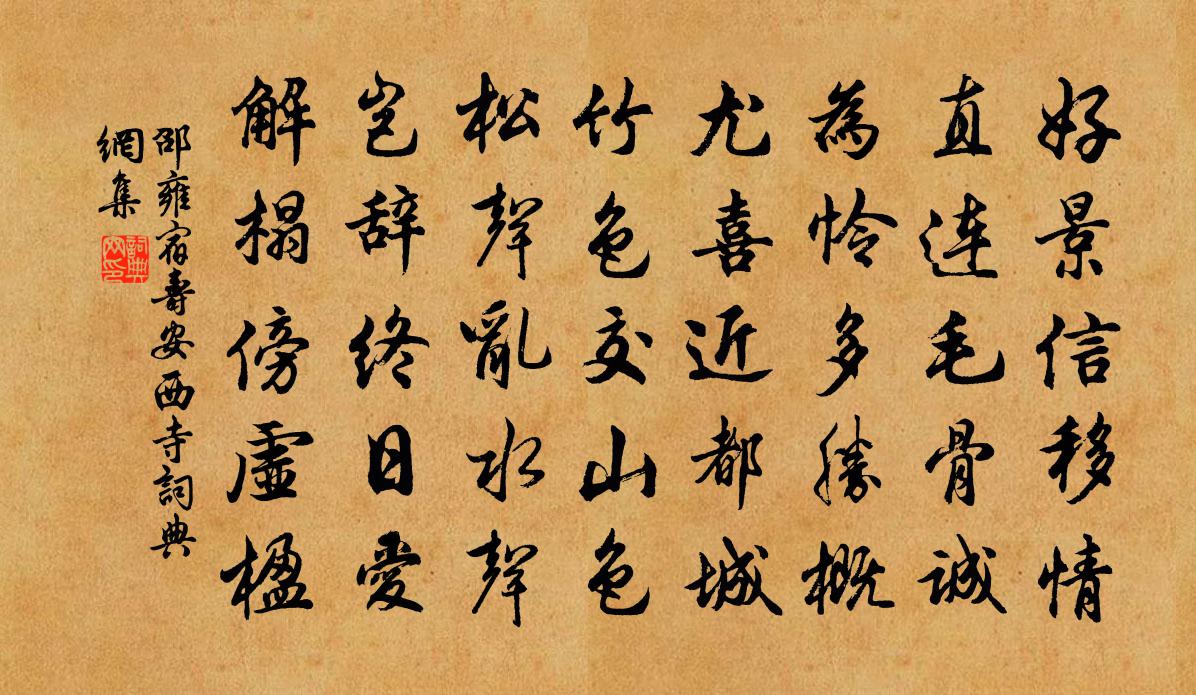 好景信移情
直連毛骨誠
為怜多勝概
尤喜近都城
竹色交山色
松聲亂水聲
豈辞終日愛
解榻傍虛楹
邵雍宿壽安西寺詞典
網集
詞典网印